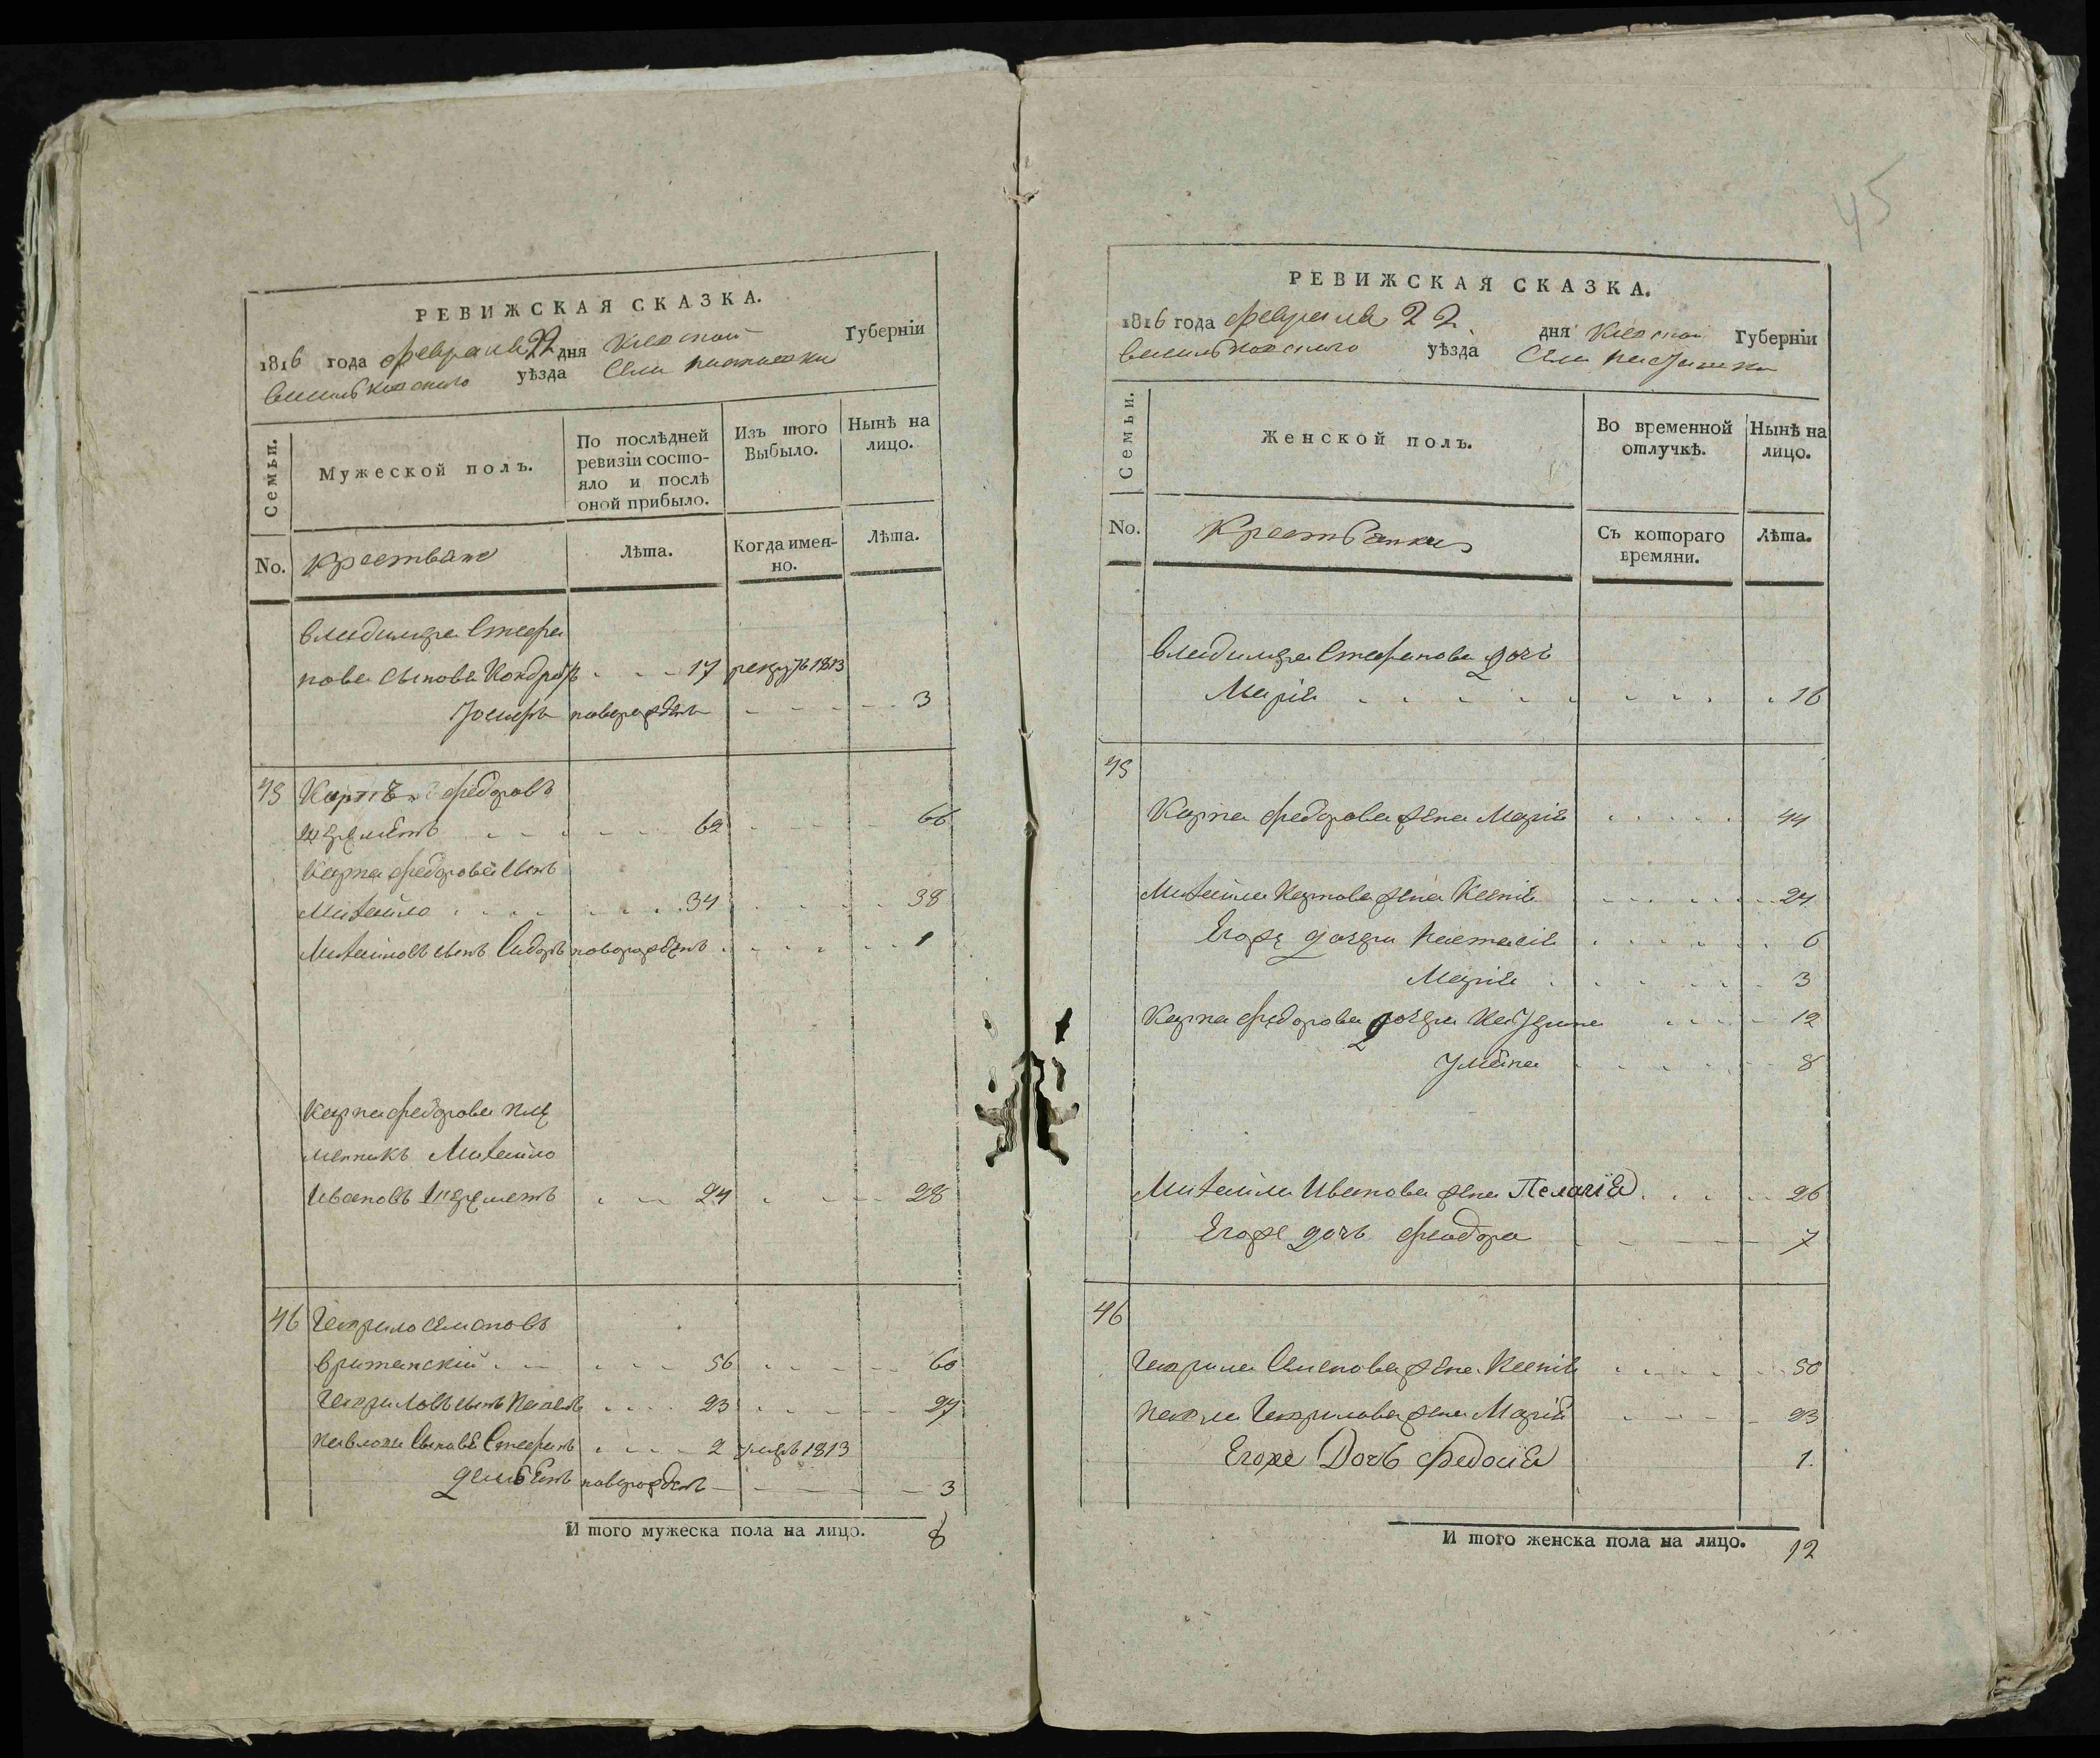 РЕВИЖСКАЯ СКАЗКА.
1816 года февраля 22 дня Киевской Губерніи
Васильковского уѣзда Села
Семьи.
Мужеской полъ.
По послѣдней ревизіи состояло и послѣ оной прибыло.
Изъ того Выбыло.
Нынѣ на лицо.
No. Крестьяне
Лѣта.
Когда имен-но.
Лѣта.
Владимера Стефа
нова сынове Кондратъ 17 рекрутъ 1813
Іосифъ новорожденъ 3
45 Карпъ федоровъ
62 66
Карпа федорова сынъ
Михайло 34 38
Михайловъ сынъ Сидоръ новорожденъ 1
Карпа федорова пле
менникъ Михайло
Ивановъ Шереметъ 24 28
46 Гаврило семеновъ
Британскій 56 60
Гавриловъ сынъ Павелъ 23 27
Павловы сынове Стефанъ 2 умеръ 1813
Демьянъ новорожденъ 3
И того мужеска пола на лицо. 8
45
РЕВИЖСКАЯ СКАЗКА.
1816 года февраля 22 дня Киевской Губерніи
Васильковского уѣзда Села
Семьи.
Женской полъ.
Во временной отлучкѣ.
Нынѣ на лицо.
No. Крестьянки
Съ котораго времяни.
Лѣта.
Владимера Стефанова дочь
Марія 16
45
Карпа федорова жена Марія 44
Михайла Карпова жена Ксенія 24
Егоже дочери Настасія 6
Марія 3
Карпа федорова дочери Катерина 12
Уляна 8
Михайла Иванова жена Пелагія 26
Егоже дочь феодора 7
46
Гаврила Семенова жена Ксенія 50
Павла Гаврилова жена Марія 23
Егоже Дочь Федосія 1.
И того женска пола на лицо. 12